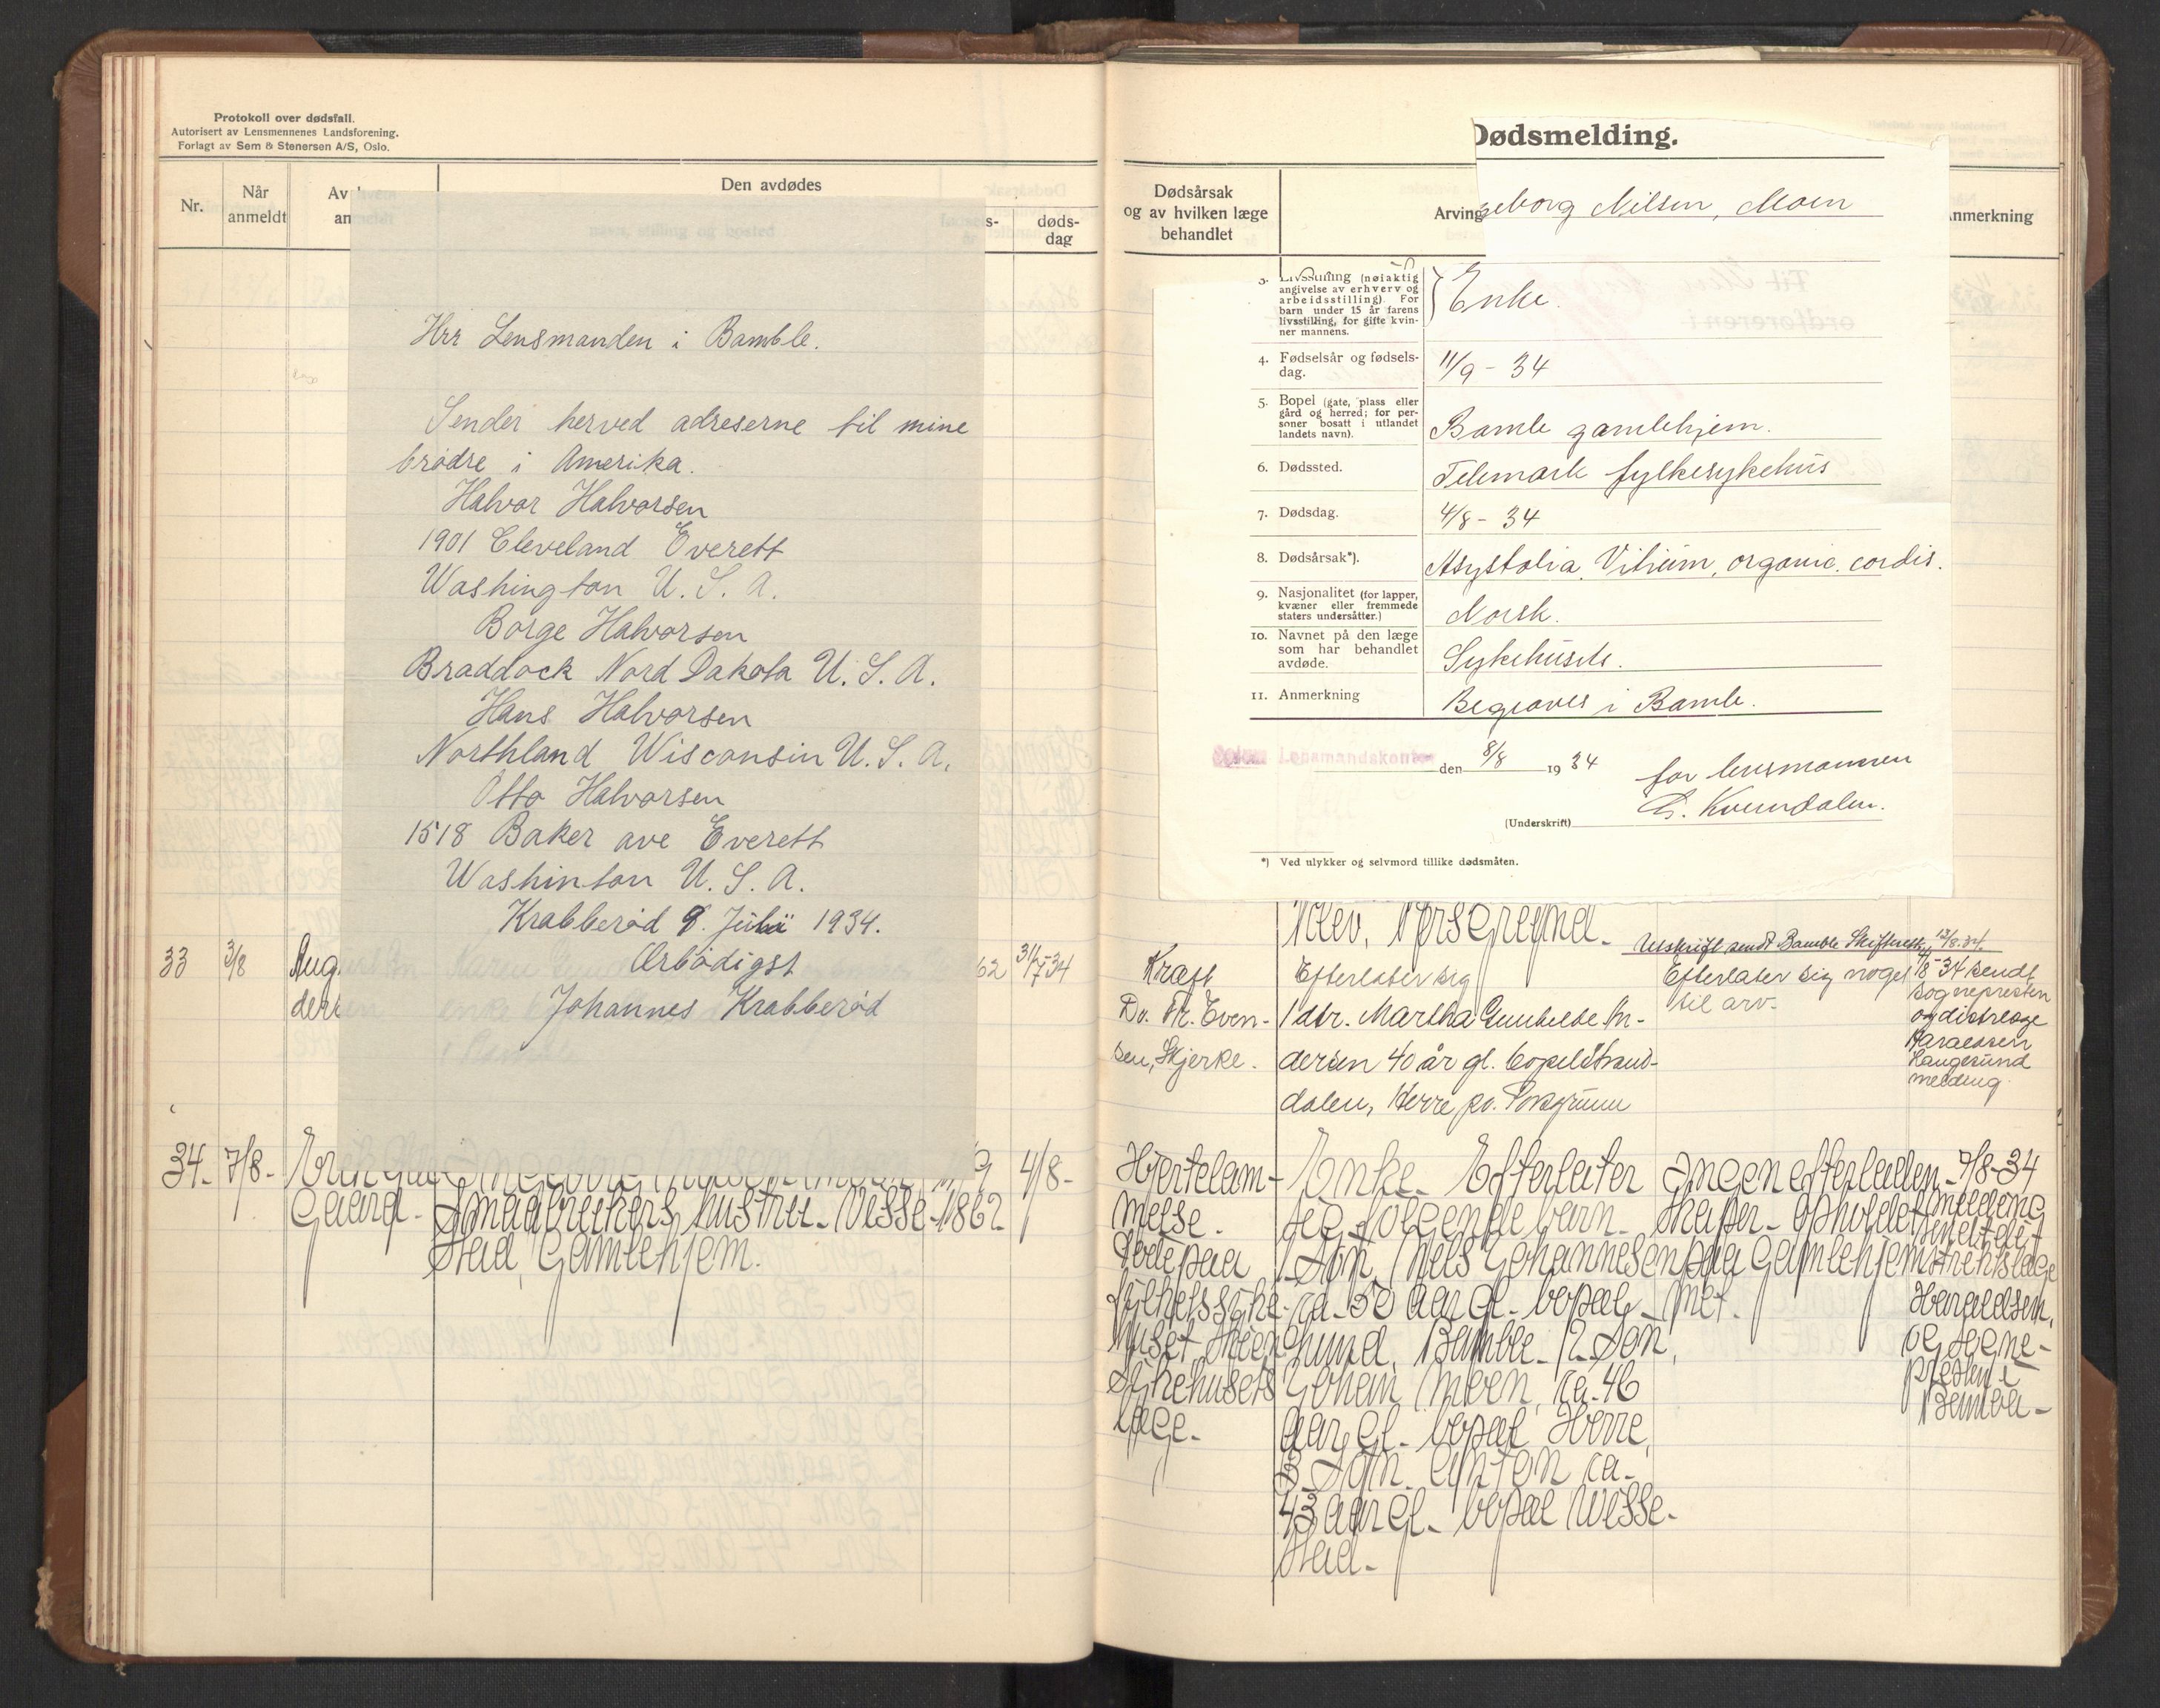 Protokoll over dødsfall.
Autorisert av Lensmennenes Landsforening.
Forlagt av Sem & Stenersen A/S, Oslo.
Nr.
Når
anmeldt
Av
an
Den avdødes
s-
døds-
dag
Hrr Lensmanden i Bamble.
Sender herved adreserne til mine
brødre i Amerika.
Halvor Halvorsen
1901 Cleveland Everett
Washington U. S. A.
Borge Halvorsen
Braddock Nord Dakota U. S. A.
Hans Halvorsen
Northland Wisconsin U. S. A.
Otto Halvorsen
1518 Baker ave Everett
Washinton U. S. A.
Krabberød 9. Juli 1934.
Ærbødigst
Johannes Krabberød
33 3/8 Aug 62 31/7-34
34. 7/8- 4/8-
Gaard- Smaabrukers hustru. Visse- 1862
stad, Gamlehjem.
Dødsmelding.
Dødsårsak
og av hvilken læge
behandlet
Arving
nmerkning
eborg Nilsen, Moen
3. Livsstilling (nøiaktig
angivelse av erhverv og
arbeidsstilling). For
barn under 15 år farens
livsstilling, for gifte kvin-
ner mannens.
Enke.
4. Fødselsår og fødsels-
dag.
11/9 - 34
5. Bopel (gate, plass eller
gård og herred; for per-
soner bosatt i utlandet
landets navn).
Bamle gamlehjem.
6. Dødssted.
Telemark fylkesykehus
7. Dødsdag.
4/8 - 34
8. Dødsårsak*).
Asystolia, Vitium, organic. cordis.
9. Nasjonalitet (for lapper,
kvæner eller fremmede
staters undersåtter.)
Norsk.
10. Navnet på den læge
som har behandlet
avdøde.
Sykehusets.
11. Anmerkning
Begraves i Bamle.
Lensmandskontor den 8/8 1934
for lensmannen
(Underskrift)
*) Ved ulykker og selvmord tillike dødsmåten.
Utskrift sendt Bamble Skifterett, 13/8.34.
Kræft
Dr. Fr. Even-
sen, Skjerke.
Efterlater sig
1 dtr. Martha Gunhilde An-
dersen 40 år gl. bopel Strand-
dalen, Herre pr. Porsgrunn
Efterlater sig noget
til arv-
4/8-34 sendt
sognepresten
og distr.læge
Haraldsen
Langesund
melding.
Hjertelam-
melse.
Døde paa
fylkessyke-
huset Skien
sykehusets
læge.
Enke. Efterlater
seg følgende barn-
1 Søn, Nils Johannesen
ca. 50 aar gl- bopæl-
sund, Bamble. 2 Søn,
Johan Moen, ca. 46
aar gl- bopæl Herre,
3 Søn Anton ca.
43 aar gl- bopæl Visse-
stad-
Ingen efterladen-
skaper- opholdet
paa Gamlehjem-
met.
7/8-34
melding
sendt dis-
triktslæge
Haraldsen,
og sogne-
presten i
Bamble-